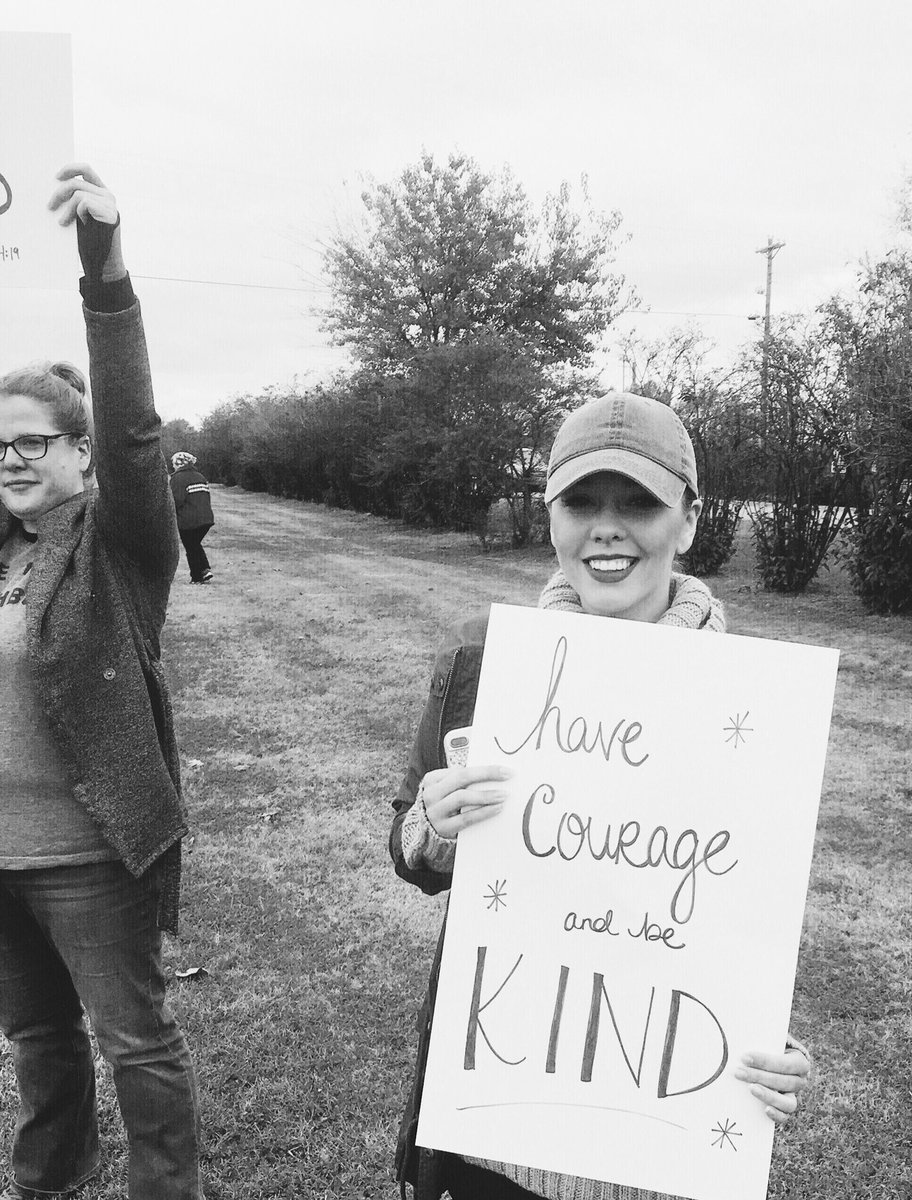 4:19
have
Courage
and be
KIND